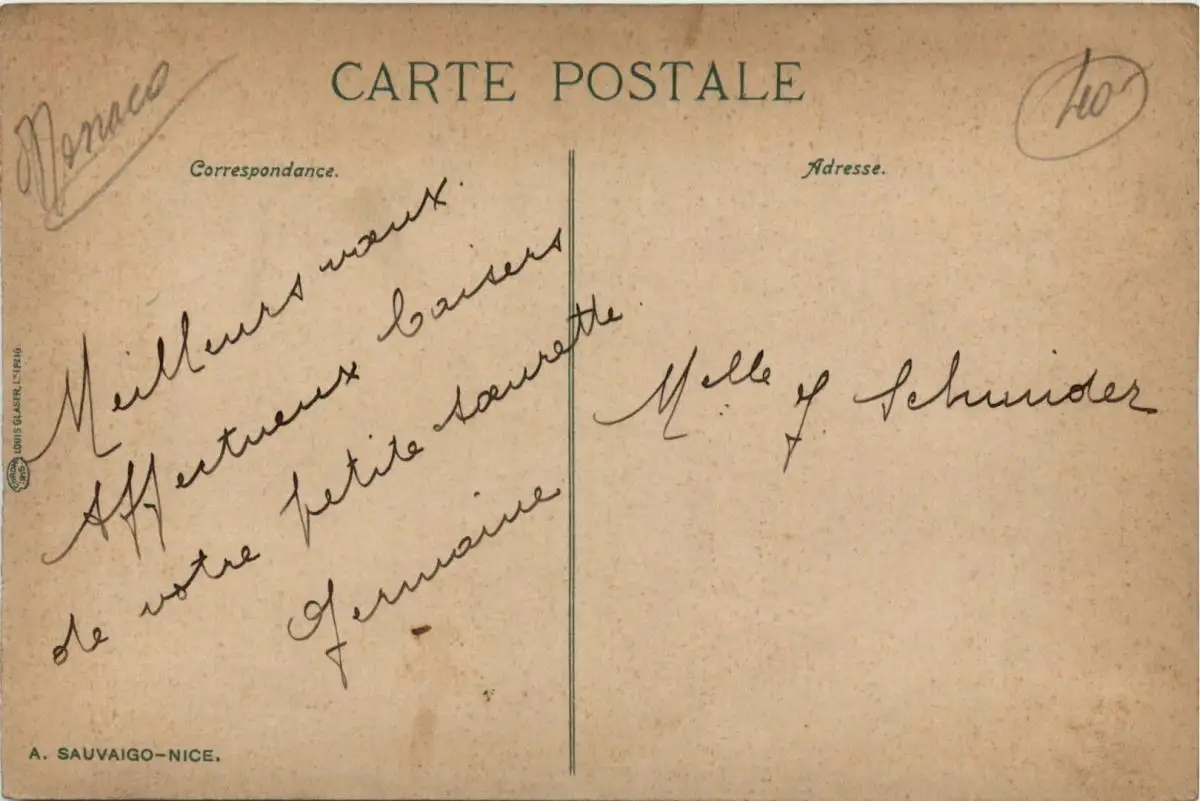 CARTE POSTALE
Monaco
40
Correspondance.
Adresse.
Meilleurs vœux.
Affectueux baisers
de votre petite sœurette.
Germaine
Melle Y Schnuider
LOUIS GLASER, LEIPZIG
A. SAUVAIGO-NICE.